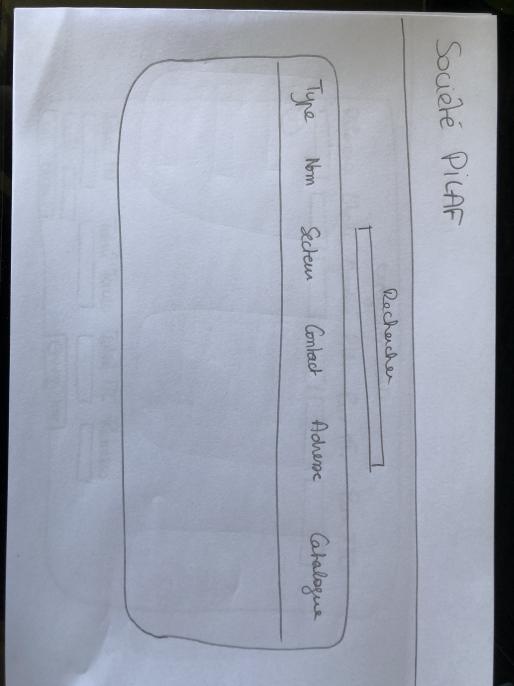 Société PILAF
Rechercher
Type Nom Secteur Contact Adresse Catalogue